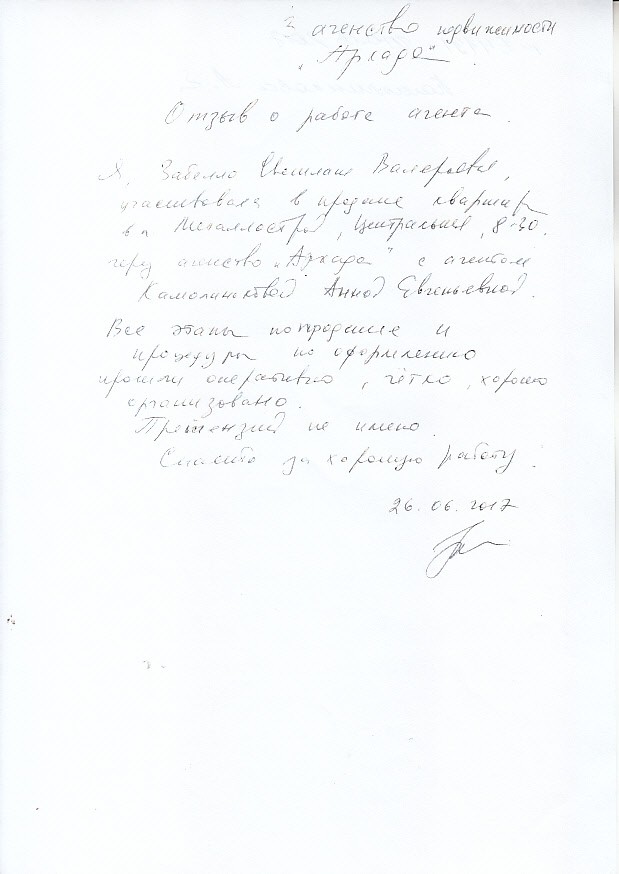 В агенство недвижимости
„Аркада"
Отзыв о работе агента.
Я, Забелло Светлана Валерьевна,
участвовала в продаже квартиры
в п Металлострой, Центральная, 8-30.
через агенство „Аркада" с агентом
Анной Евгеньевной.
Все этапы по продаже и
процедуры по оформлению
прошли оперативно, чётко, хорошо
организовано.
Претензий не имею.
Спасибо за хорошую работу.
26.06.2017